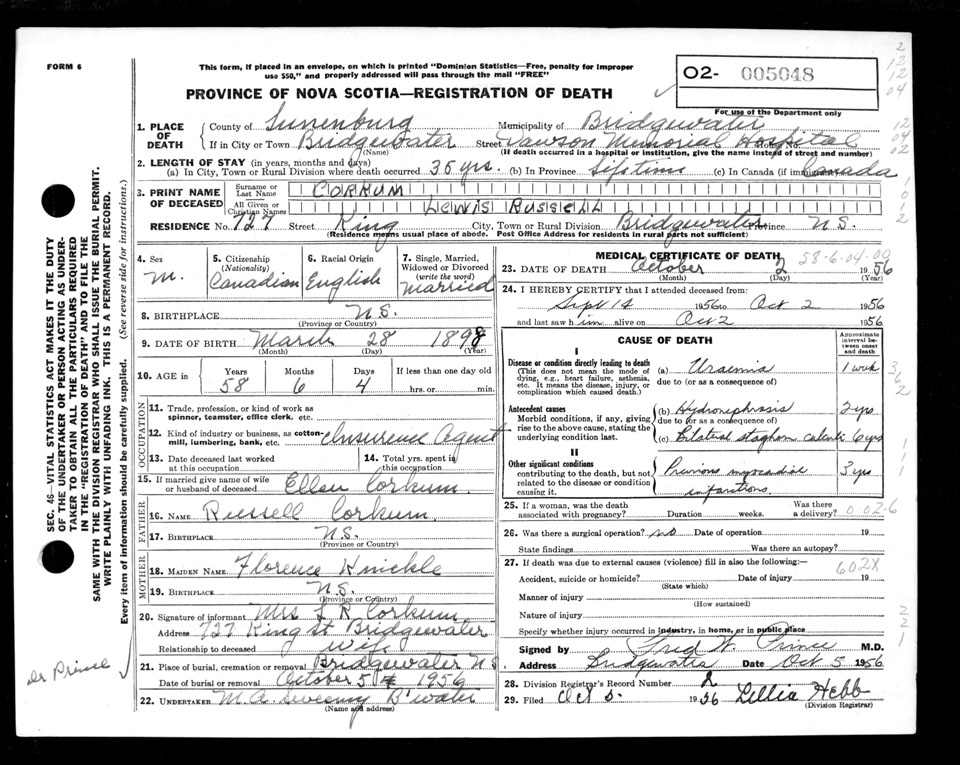 FORM 6
This form, if placed in an envelope, on which is printed "Dominion Statistics—Free, penalty for improper
use $50," and properly addressed will pass through the mail "FREE"
O2- 005048
For use of the Department only
PROVINCE OF NOVA SCOTIA—REGISTRATION OF DEATH
2
12
12
04
12
04
02
1
01
2
1. PLACE OF DEATH
County of Lunenburg Municipality of Bridgewater
If in City or Town Bridgewater Street Dawson Memorial Hospital House No.
(Name) (If death occurred in a hospital or institution, give the name instead of street and number)
2. LENGTH OF STAY (in years, months and days)
(a) In City, Town or Rural Division where death occurred 35 yrs. (b) In Province Lifetime (c) In Canada (if immigrant) Canada
3. PRINT NAME OF DECEASED
Surname or Last Name CORKUM
All Given or Christian Names LEWIS RUSSELL
RESIDENCE No. 727 Street King City, Town or Rural Division Bridgewater Province N.S.
(Residence means usual place of abode. Post Office Address for residents in rural parts not sufficient)
4. Sex M.
5. Citizenship (Nationality) Canadian
6. Racial Origin English
7. Single, Married, Widowed or Divorced (write the word) Married
8. BIRTHPLACE N.S.
(Province or Country)
9. DATE OF BIRTH March 28 1898
(Month) (Day) (Year)
10. AGE in Years 58 Months 6 Days 4 If less than one day old hrs. or min.
OCCUPATION
11. Trade, profession, or kind of work as spinner, teamster, office clerk, etc.
12. Kind of industry or business, as cotton-mill, lumbering, bank, etc. Insurence Agent
13. Date deceased last worked at this occupation
14. Total yrs. spent in this occupation
15. If married give name of wife or husband of deceased Ellen Corkum.
FATHER
16. NAME Russell Corkum.
17. BIRTHPLACE N.S.
(Province or Country)
MOTHER
18. MAIDEN NAME Florence Knickle
19. BIRTHPLACE N.S.
(Province or Country)
20. Signature of informant Mrs L R Corkum
Address 727 King St Bridgewater
Relationship to deceased wife
21. Place of burial, cremation or removal Bridgewater N.S
Date of burial or removal October 5th 1956
22. UNDERTAKER M.A. Sweeny B'water
(Name and address)
MEDICAL CERTIFICATE OF DEATH
58-6-04-00
23. DATE OF DEATH October 2 1956
(Month) (Day) (Year)
24. I HEREBY CERTIFY that I attended deceased from:
Sept 14 1956 to Oct 2 1956
and last saw him alive on Oct 2 1956
CAUSE OF DEATH
Approximate interval between onset and death
I
Disease or condition directly leading to death
(This does not mean the mode of dying, e.g., heart failure, asthenia, etc. It means the disease, injury, or complication which caused death.)
(a) Uraemia 1 week
due to (or as a consequence of)
Antecedent causes
Morbid conditions, if any, giving rise to the above cause, stating the underlying condition last.
(b) Hydronephrosis 2 yrs
due to (or as a consequence of)
(c) Bilateral staghorn calculi 6 yrs
II
Other significant conditions
contributing to the death, but not related to the disease or condition causing it.
Previous myocardial infarctions. 3 yrs
25. If a woman, was the death associated with pregnancy? Duration weeks. Was there a delivery?
002-6
26. Was there a surgical operation? no Date of operation 19
State findings Was there an autopsy?
27. If death was due to external causes (violence) fill in also the following:—
602X
Accident, suicide or homicide? Date of injury 19
(State which)
Manner of injury
(How sustained)
Nature of injury
Specify whether injury occurred in industry, in home, or in public place
Signed by Fred W. Prince M.D.
Address Bridgewater Date Oct 5 1956
28. Division Registrar's Record Number 2
29. Filed Oct 5. 1956 Lillia Hebb
(Division Registrar)
SEC. 46—VITAL STATISTICS ACT MAKES IT THE DUTY
OF THE UNDERTAKER OR PERSON ACTING AS UNDER-
TAKER TO OBTAIN ALL THE PARTICULARS REQUIRED
IN THE "REGISTRATION OF DEATH" AND TO FILE THE
SAME WITH THE DIVISION REGISTRAR WHO SHALL ISSUE THE BURIAL PERMIT.
WRITE PLAINLY WITH UNFADING INK. THIS IS A PERMANENT RECORD.
Every item of information should be carefully supplied. (See reverse side for instructions.)
Dr Prince